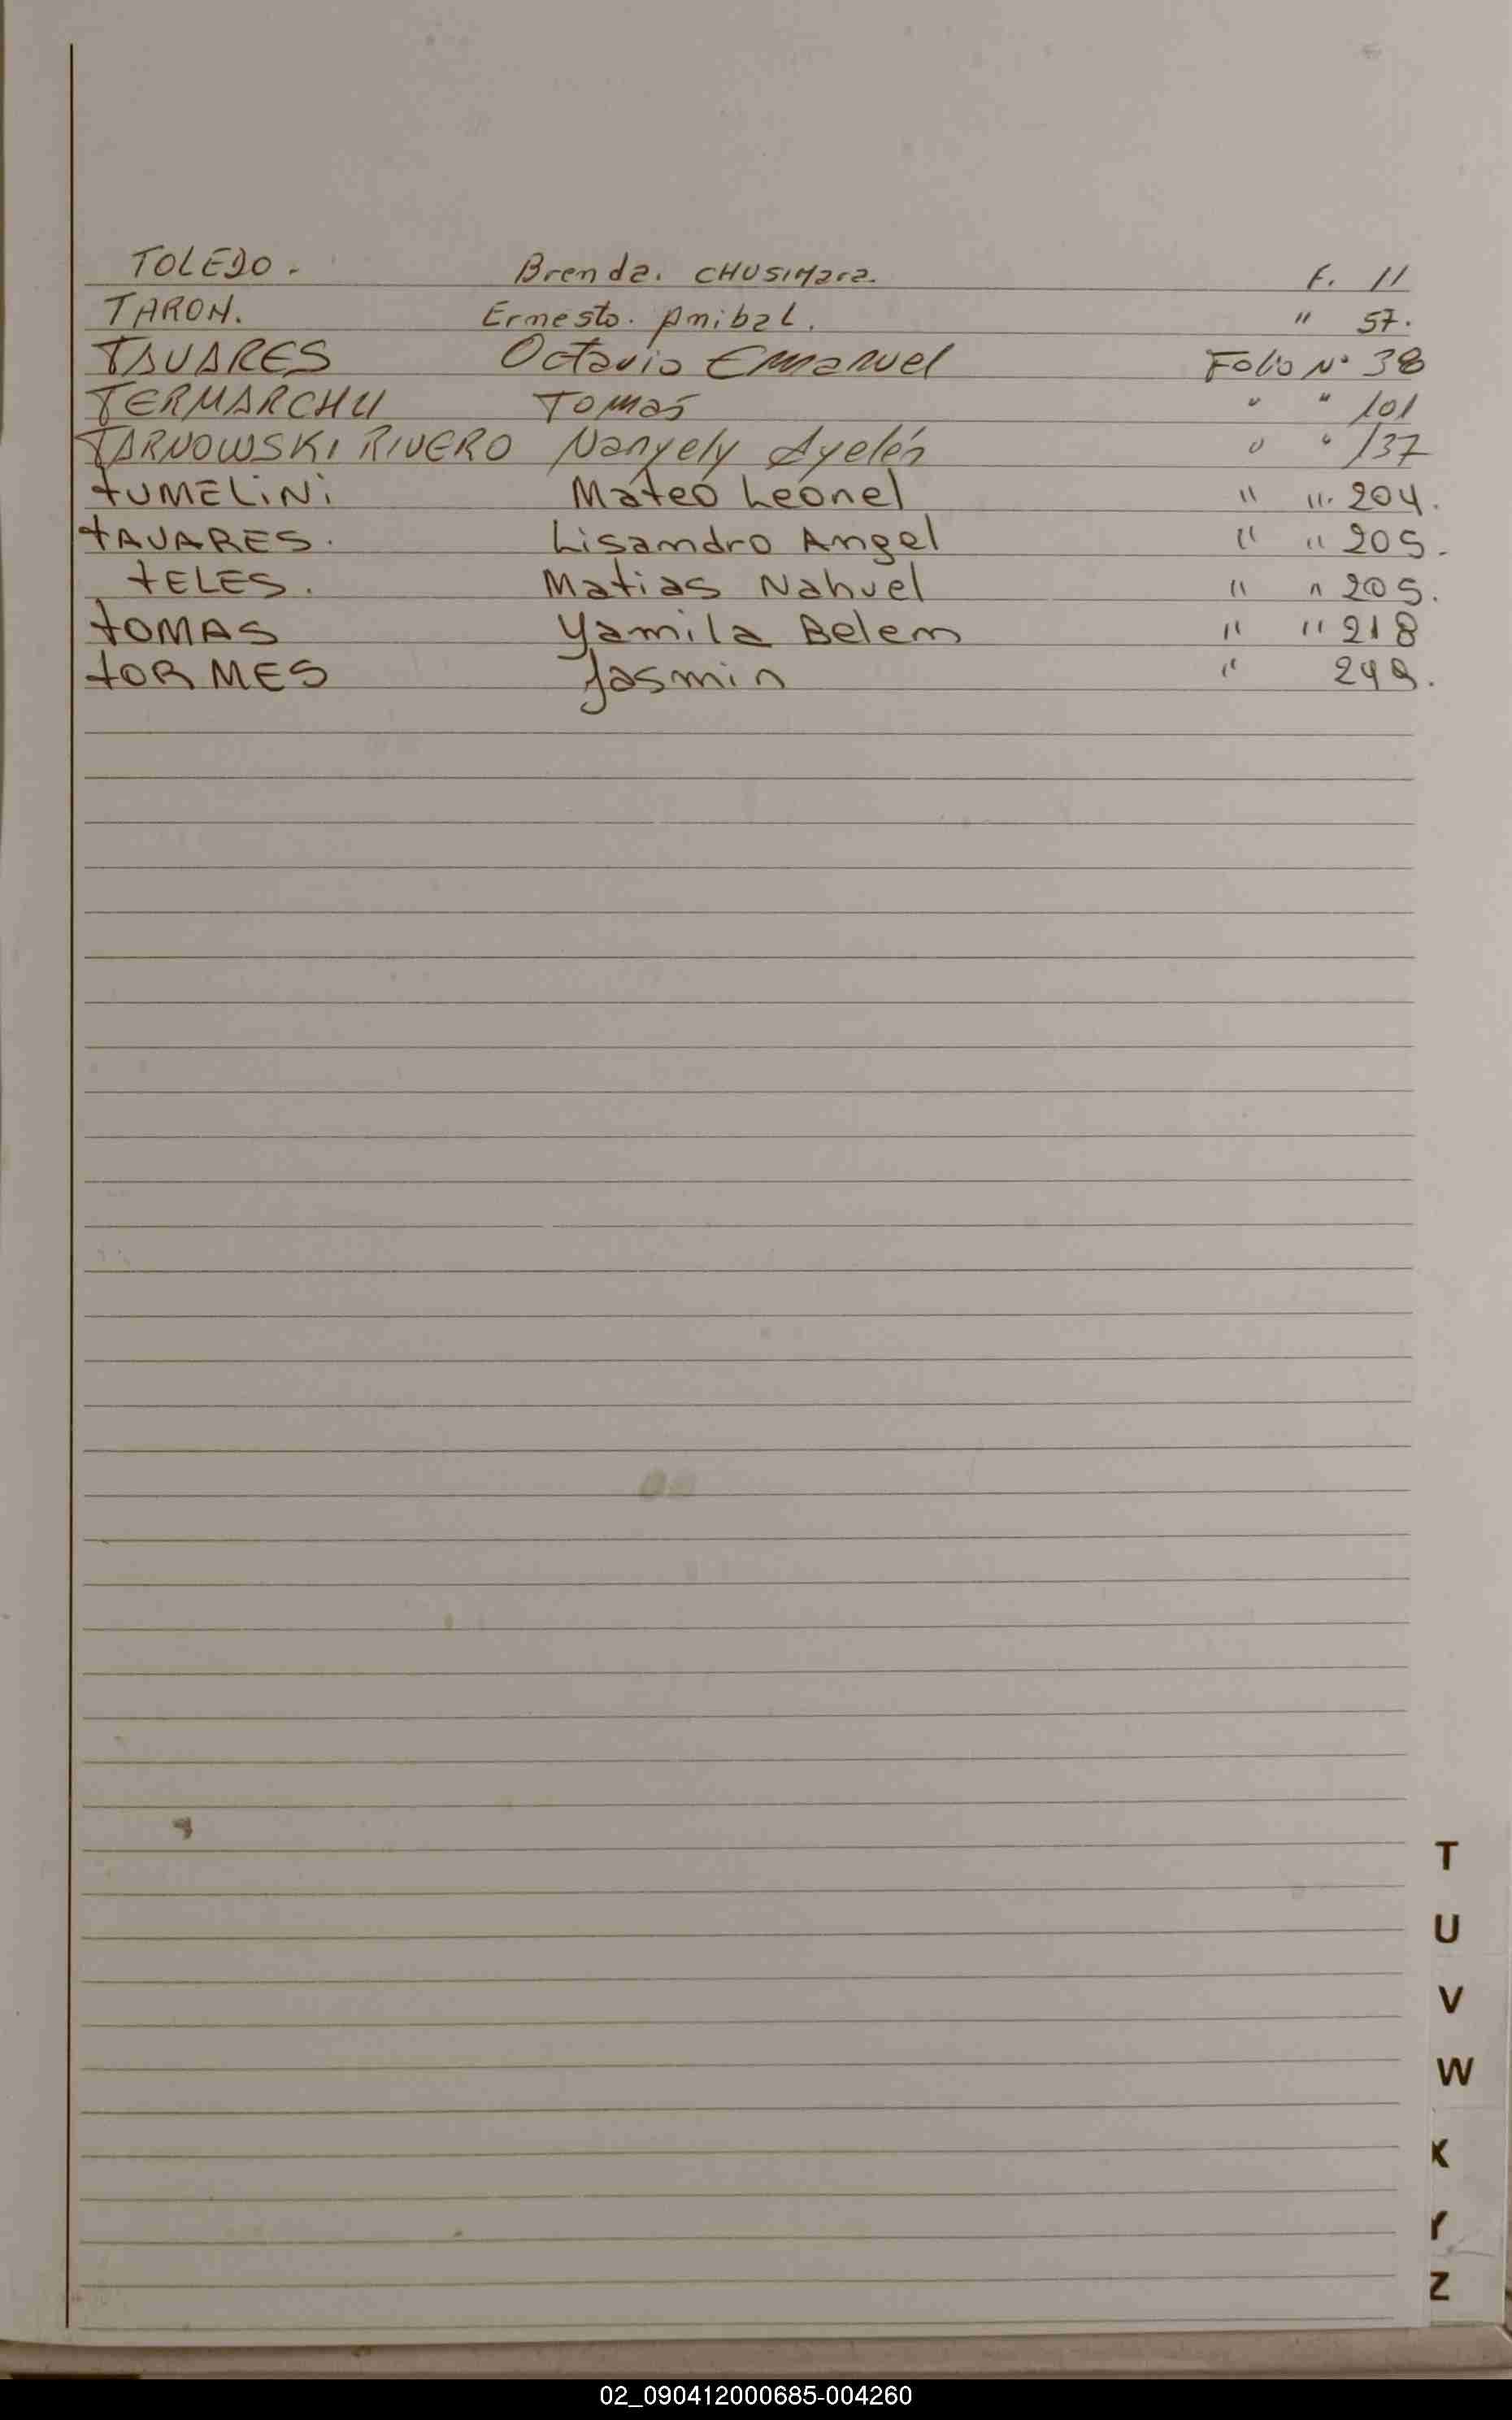 TOLEDO. Brenda. CHUSIMara. F. 11
TARON. Ernesto. Anibal. " 57.
TAVARES Octavio Emanuel Folio Nº 38
TERMARCHU Tomás " " 101
TARNOWSKI RIVERO Nanyely Ayelén " " 137
TUMELiNi Mateo Leonel " ". 204.
TAVARES. Lisandro Angel " " 205.
TELES. Matias Nahuel " " 205.
TOMAS Yamila Belem " " 218
TORMES Jasmin " 249.
T
U
V
W
X
Y
Z
02_090412000685-004260